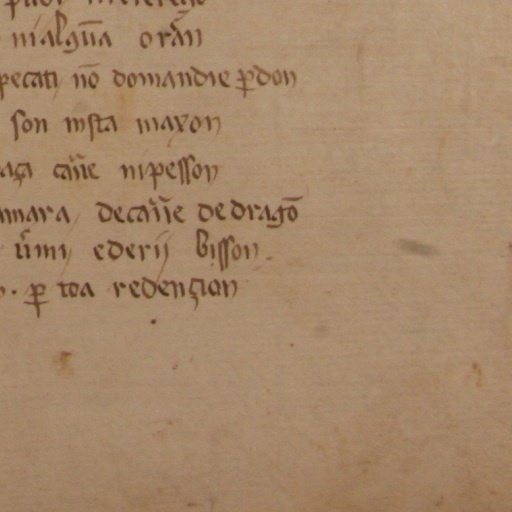 ni alguñа orãn
pecati nõ domandie ꝑdon
son in sta maxon
aça carñe ni pesson
amara de carñe de dragõ
ũmi e de rii bisson.
. ꝑ toa redençion